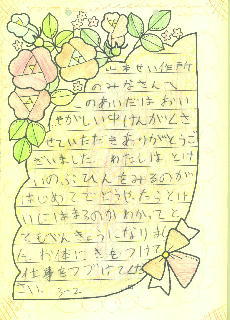 のみなさんへ
このあいだは おい
そがしい中けんがくさ
せていただきありがとうご
ざいました。わたしは とけ
いのぶひんをみるのが
はじめてで どうやったらとけ
いにはまるのか わかって と
てもべんきょうになりまし
た。お体に きをつけて
仕事をつづけてくだ
さい。 3-2